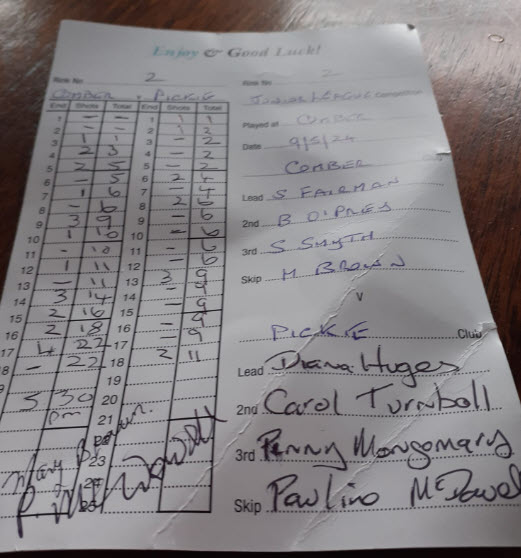 Enjoy & Good Luck!
Rink No 2 Rink No 2
COMBER v PICKIE
JUNIOR LEAGUE Competition
End Shots Total End Shots Total
Played at COMBER
Date 9/5/24
COMBER
Lead S FAIRMAN
2nd B
3rd S SMYTH
Skip M BROWN
V
PICKIE Club
Lead Diana Huges
2nd Carol Turnbull
3rd Penny Mongomary
Skip Pauline McDowel
1 - - 1 1 1
2 - - 2 1 2
3 1 1 3 - 2
4 2 3 4 - 2
5 2 5 5 - 2
6 - 5 6 2 4
7 1 6 7 - 4
8 - 6 8 2 6
9 3 9 9 - 6
10 1 10 10 - 6
11 - 10 11 - 6
12 1 11 12 - 6
13 - 11 13 3 9
14 3 14 14 - 9
15 2 16 15 - 9
16 2 18 16 - 9
17 4 22 17 - 9
18 - 22 18 2 11
19
5 30 20
pm 21
Mary Brown
23
P. McDowell